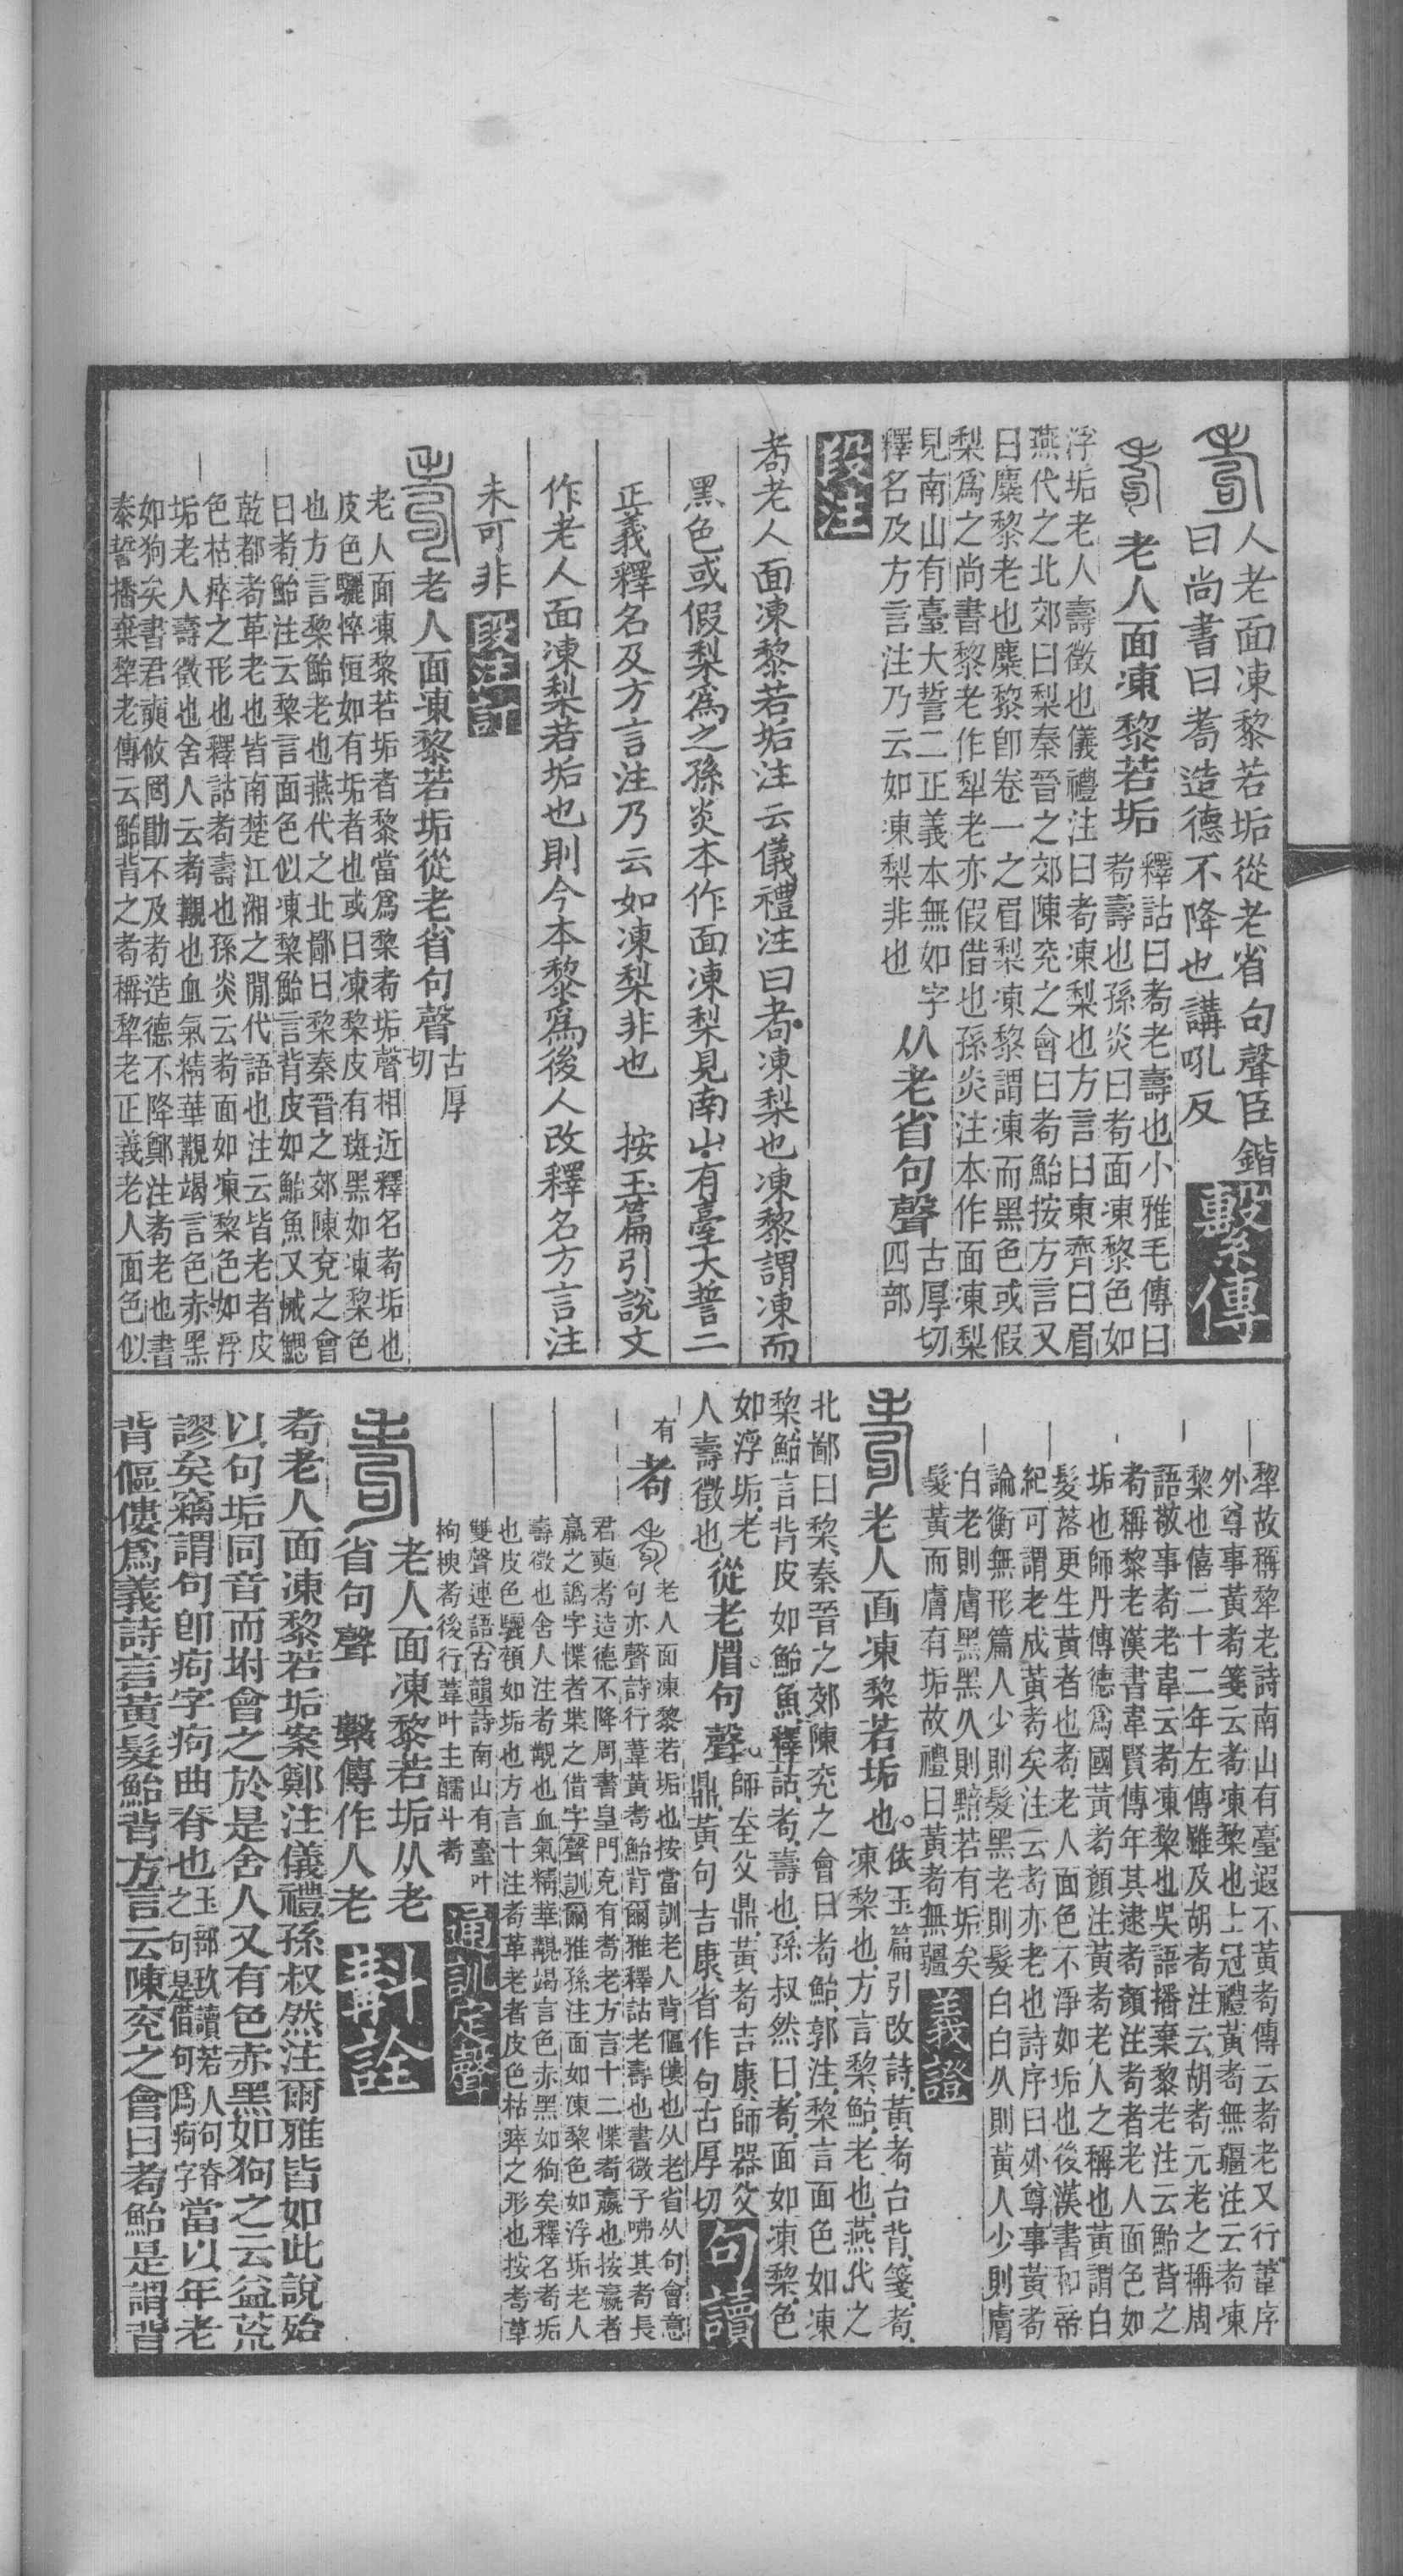 人老面凍黎若垢從老省句聲臣鍇
曰尚書曰耇造德不降也講吼反
繫傳
老人面凍黎若垢
釋詁曰耇老壽也小雅毛傳曰
耇壽也孫炎曰耇面凍黎色如
浮垢老人壽徵也儀禮注曰耇凍梨也方言曰東齊曰眉
燕代之北郊曰梨秦晉之郊陳兖之會曰耇鮐按方言又
曰麋黎老也麋黎卽卷一之眉梨凍黎謂凍而黑色或假
梨爲之尚書黎老作犁老亦假借也孫炎注本作面凍梨
見南山有臺大誓二正義本無如字
釋名及方言注乃云如凍梨非也
从老省句聲
古厚切
四部
段注
耇老人面凍黎若垢注云儀禮注曰耇凍梨也凍黎謂凍而
黑色或假梨爲之孫炎本作面凍梨見南山有臺大誓二
正義釋名及方言注乃云如凍梨非也 按玉篇引說文
作老人面凍梨若垢也則今本黎爲後人改釋名方言注
未可非
段注訂
老人面凍黎若垢從老省句聲
古厚
切
老人面凍黎若垢者黎當爲棃耇垢聲相近釋名耇垢也
皮色驪悴恒如有垢者也或曰凍棃皮有斑黑如凍棃色
也方言棃鮐老也燕代之北鄙曰棃秦晉之郊陳兗之會
曰耇鮐注云棃言面色似凍棃鮐言背皮如鮐魚又㥘鰓
乾都耇革老也皆南楚江湘之閒代語也注云皆老者皮
色枯瘁之形也釋詁耇壽也孫炎云耇面如凍棃色如浮
垢老人壽徵也舍人云耇覯也血氣精華覯竭言色赤黑
如狗矣書君奭攸罔勖不及耇造德不降鄭注耇老也書
泰誓播棄犂老傳云鮐背之耇稱犂老正義老人面色似
犂故稱犂老詩南山有臺遐不黃耇傳云耇老又行葦序
外尊事黃耇箋云耇凍棃也士冠禮黃耇無疆注云耇凍
棃也僖二十二年左傳雖及胡耇注云胡耇元老之稱周
語敬事耇老韋云耇凍棃也吳語播棄黎老注云鮐背之
耇稱黎老漢書韋賢傳年其逮耇顏注耇者老人面色如
垢也師丹傳德爲國黃耇顏注黃耇老人之稱也黃謂白
髮落更生黃者也耇老人面色不淨如垢也後漢書和帝
紀可謂老成黃耇矣注云耇亦老也詩序曰外尊事黃耇
論衡無形篇人少則髮黑老則髮白白久則黃人少則膚
白老則膚黑黑久則黯若有垢矣
髮黃而膚有垢故禮曰黃耇無疆
義證
老人面凍黎若垢也。
依玉篇引改詩黃耇台背箋耇
凍棃也方言棃鮐老也燕代之
北鄙曰棃秦晉之郊陳兖之會曰耇鮐郭注棃言面色如凍
棃鮐言背皮如鮐魚釋詁耇壽也孫叔然曰耇面如凍棃色
如浮垢老
人壽徵也
從老省句聲
師至父鼎黃耇吉康師器父
鼎黃句吉康省作句古厚切
句讀
有
耇
老人面凍黎若垢也按當訓老人背傴僂也从老省从句會意
句亦聲詩行葦黃耇鮐背爾雅釋詁老壽也書微子咈其耇長
君奭耇造德不降周書皇門克有耇老方言十二㥘耇嬴也按嬴者
羸之譌字㥘者枼之借字聲訓爾雅孫注面如凍黎色如浮垢老人
壽徵也舍人注耇覯也血氣精華覯竭言色赤黑如狗矣釋名耇垢
也皮色驪頓如垢也方言十注耇革老者皮色枯瘁之形也按耇革
雙聲連語古韻詩南山有臺叶
枸楰耇後行葦叶主醹斗耇
通訓定聲
老人面凍黎若垢从老
省句聲 繫傳作人老
斠詮
耇老人面凍黎若垢案鄭注儀禮孫叔然注爾雅皆如此說殆
以句垢同音而坿會之於是舍人又有色赤黑如狗之云益荒
謬矣竊謂句卽痀字痀曲脊也
玉部玖讀若人句脊
之句是借句爲痀字
當以年老
背傴僂爲義詩言黃髮鮐背方言云陳兖之會曰耇鮐是謂背